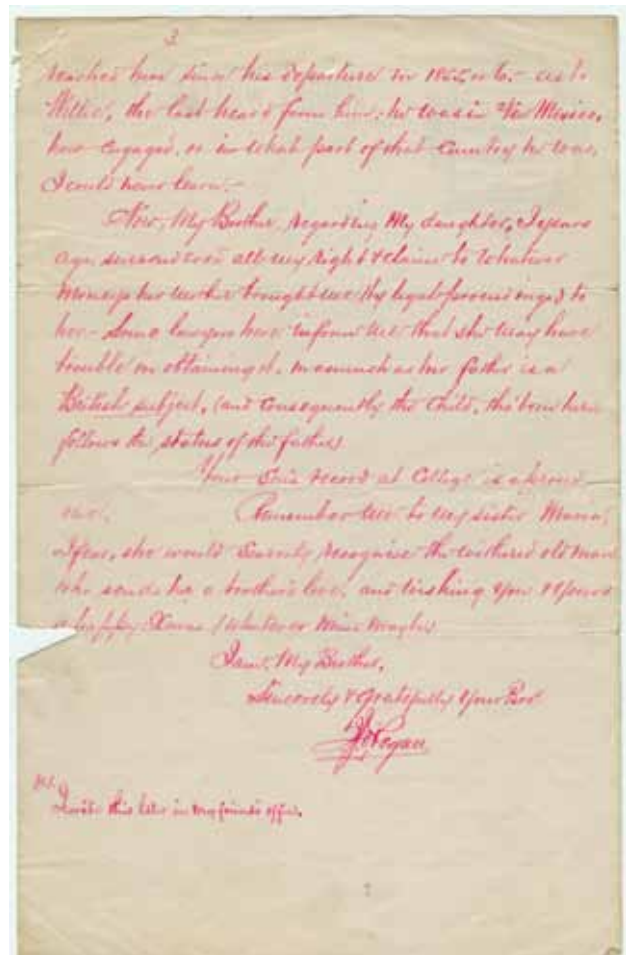 3
reached him since his departure in 1855 or 6. - as to
Willie, the last heard from him, he was in Mexico,
how engaged, or in what part of that Country he was,
I could never learn. -
Now, My Brother, regarding My daughter, I years
ago surrendered all my right & claim to whatever
moneys her mother brought me (by legal proceedings) to
her - Some lawyers here inform me that she may have
trouble in obtaining it, inasmuch as her father is a
British subject, (and consequently the child, tho' born here
follows the status of the father)
Your Son's record at College is a proud
one. Remember me to my sister Maria,
I fear, she would scarcely recognise the withered old man
who sends her a brother's love, and wishing you & yours
a happy Xmas (whatever mine may be)
I am, My Brother,
Sincerely & Gratefully Your Bro'
P.S.
I write this letter in my friend's office.